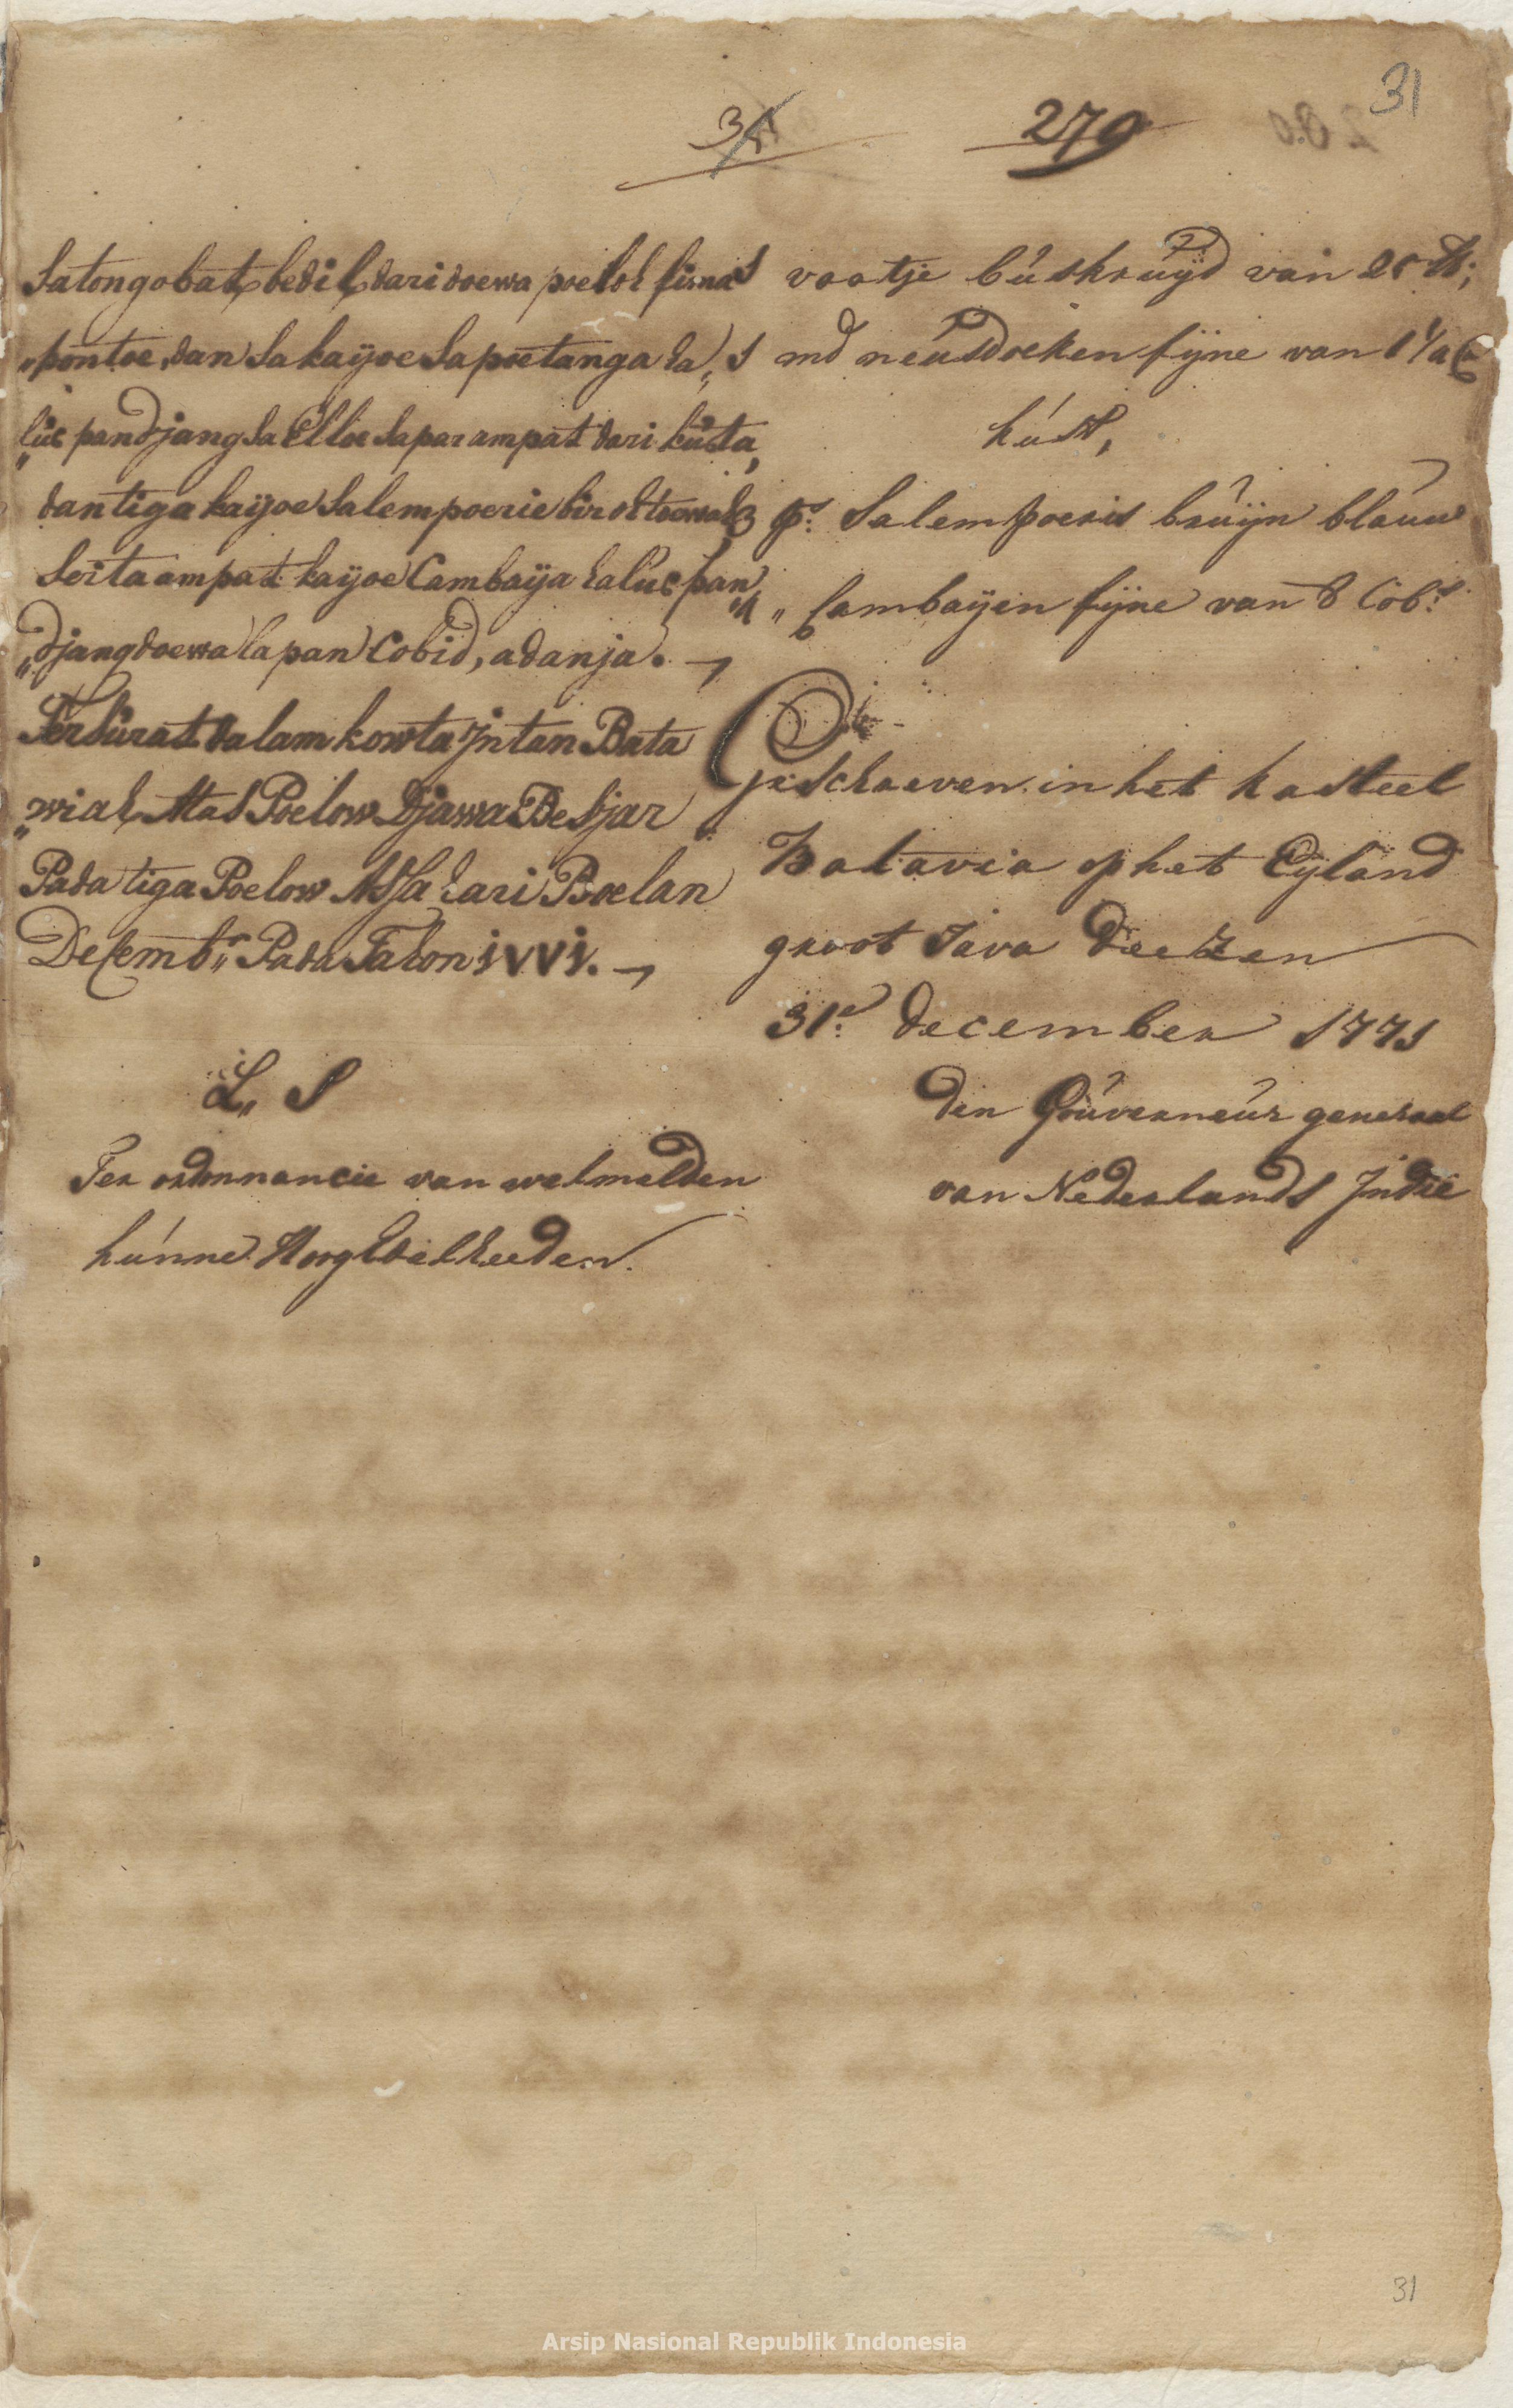 31
279
31
Satong obat bedil dari doewa poeloh lima
„pontoe, dan sa kaijoe Sapoetanga ha„
„lüs pandjang sa Elloe saparampat dari küsta,
dan tiga kaijoe Salempoerie biroh toewah,
serta ampat kaijoe Cambaija halüs pan„
„djang doewa lapan Cobid, adanja.
Tersürat dalam kowta Jntan Bata
„wiah Atas Poelow Djawa Besjar
Pada tiga Poelow Assa hari Boelan
Desemb„r Pada Tahon 1771.
L„ S
Ter ordonnancie van welmelden
hunne Hoog Edelheeden.
1 vaatje buskruyd van 25 lb;
1 md neusdoeken fijne van 1 1/4 C
kust,
3 ps. Salempoeris bruijn blauw
4 „ Cambayen fijne van 8 Cobs.
Geschreven in het kasteel
Batavia op het Eyland
groot Java deezen
31e. december 1771
den Gouverneur generaal
van Nederlands Indie
31
Arsip Nasional Republik Indonesia